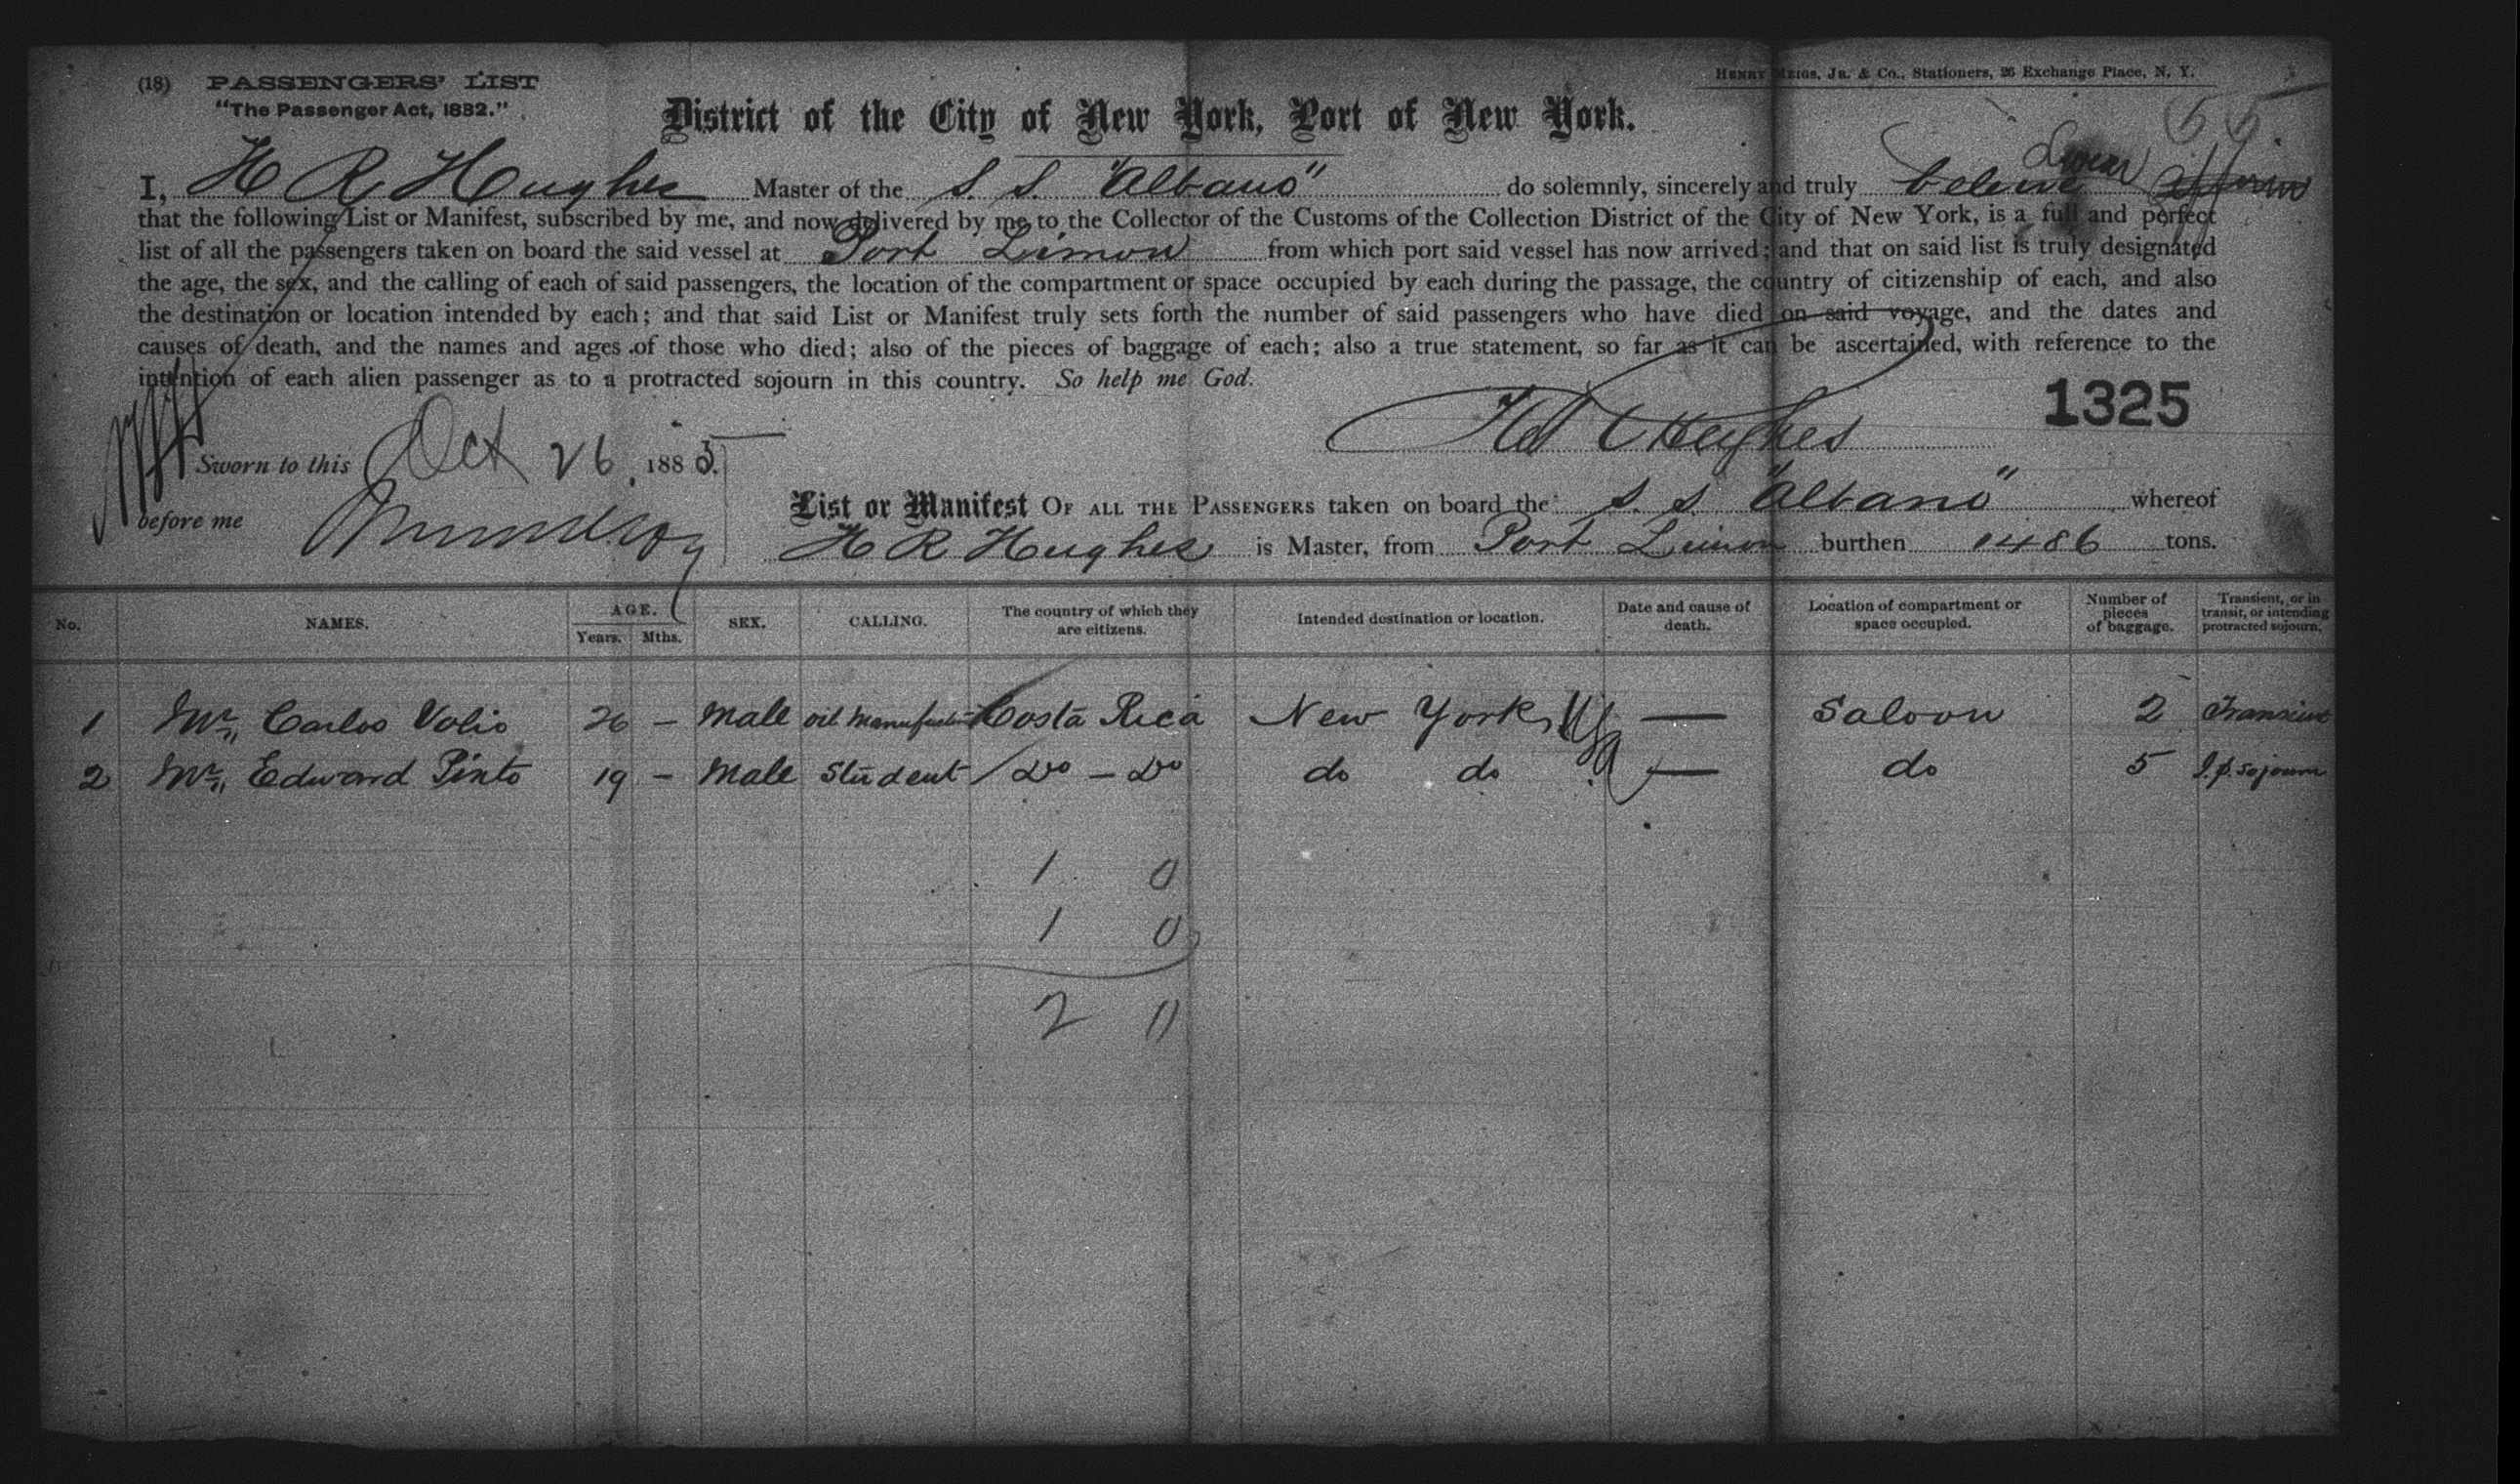 (18) PASSENGERS' LIST
HENRY MEIGS, JR. & CO., Stationers, 26 Exchange Place, N. Y.
"The Passenger Act, 1882."
District of the City of New York, Port of New York.
I, H R Hughes Master of the S. S. "Albano" do solemnly, sincerely and truly
that the following List or Manifest, subscribed by me, and now delivered by me to the Collector of the Customs of the Collection District of the City of New York, is a full and perfect
list of all the passengers taken on board the said vessel at Port Limon from which port said vessel has now arrived; and that on said list is truly designated
the age, the sex, and the calling of each of said passengers, the location of the compartment or space occupied by each during the passage, the country of citizenship of each, and also
the destination or location intended by each; and that said List or Manifest truly sets forth the number of said passengers who have died on said voyage, and the dates and
causes of death, and the names and ages of those who died; also of the pieces of baggage of each; also a true statement, so far as it can be ascertained, with reference to the
intention of each alien passenger as to a protracted sojourn in this country. So help me God.
1325
Hughes
Sworn to this Oct 26 1885
before me
List or Manifest OF ALL THE PASSENGERS taken on board the S. S. "Albano" whereof
H R Hughes is Master, from Port Limon burthen 1486 tons.
No. NAMES. AGE. Years. Mths. SEX. CALLING. The country of which they are citizens. Intended destination or location. Date and cause of death. Location of compartment or space occupied. Number of pieces of baggage. Transient, or in transit, or intending protracted sojourn.
1 Mr, Carlos Volio 26 — Male oil Manufactr Costa Rica New York, — Saloon 2 Transient
2 Mr, Edward Pinto 19 — Male Student Do — Do do do — do 5 I. p. sojourn
1 0
1 0
2 0